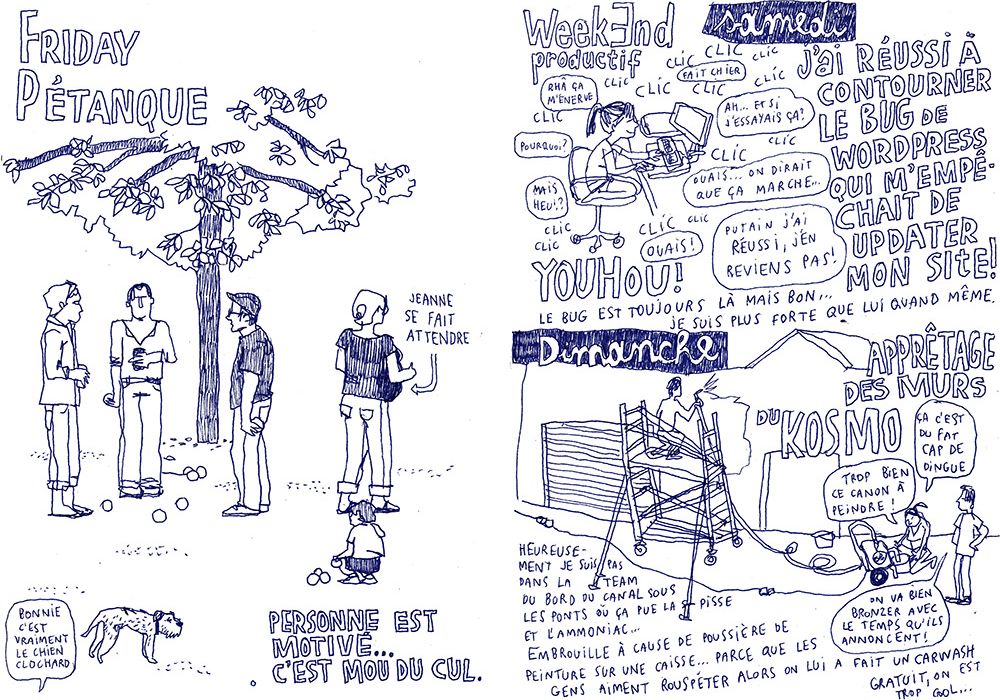 FRIDAY
PÉTANQUE
JEANNE
SE FAIT
ATTENDRE
BONNIE
C'EST
VRAIMENT
LE CHIEN
CLOCHARD
PERSONNE EST
MOTIVÉ...
C'EST MOU DU CUL.
WeekEnd
productif
samedi
CLIC
CLIC
CLIC
CLIC
CLIC
FAIT CHIER
CLIC
CLIC
CLIC
RHÂ ÇA
M'ÉNERVE
CLIC
AH... ET SI
J'ESSAYAIS ÇA?
POURQUOI?
CLIC
CLIC
OUAIS... ON DIRAIT
QUE ÇA MARCHE...
MAIS
HEU!?
CLIC
CLIC
CLIC
CLIC
OUAIS!
PUTAIN J'AI
RÉUSSI, J'EN
REVIENS PAS!
YOUHOU!
J'Ai RÉUSSI À
CONTOURNER
LE BUG DE
WORDPRESS
QUI M'EMPÊ-
CHAIT DE
UPDATER
MON SITE!
LE BUG EST TOUJOURS LÀ MAIS BON...
JE SUIS PLUS FORTE QUE LUI QUAND MÊME.
Dimanche
APPRÊTAGE
DES MURS
DU KOSMO
ÇA C'EST
DU FAT
CAP DE
DINGUE
TROP BIEN
CE CANON À
PEINDRE!
ON VA BIEN
BRONZER AVEC
LE TEMPS QU'ILS
ANNONCENT!
HEUREUSE-
MENT JE SUIS PAS
DANS LA TEAM
DU BORD DU CANAL SOUS
LES PONTS OÙ ÇA PUE LA PISSE
ET L'AMMONIAC...
EMBROUILLE À CAUSE DE POUSSIÈRE DE
PEINTURE SUR UNE CAISSE... PARCE QUE LES
GENS AIMENT ROUSPÉTER ALORS ON LUI A FAIT UN CARWASH
GRATUIT, ON EST
TROP GOL...